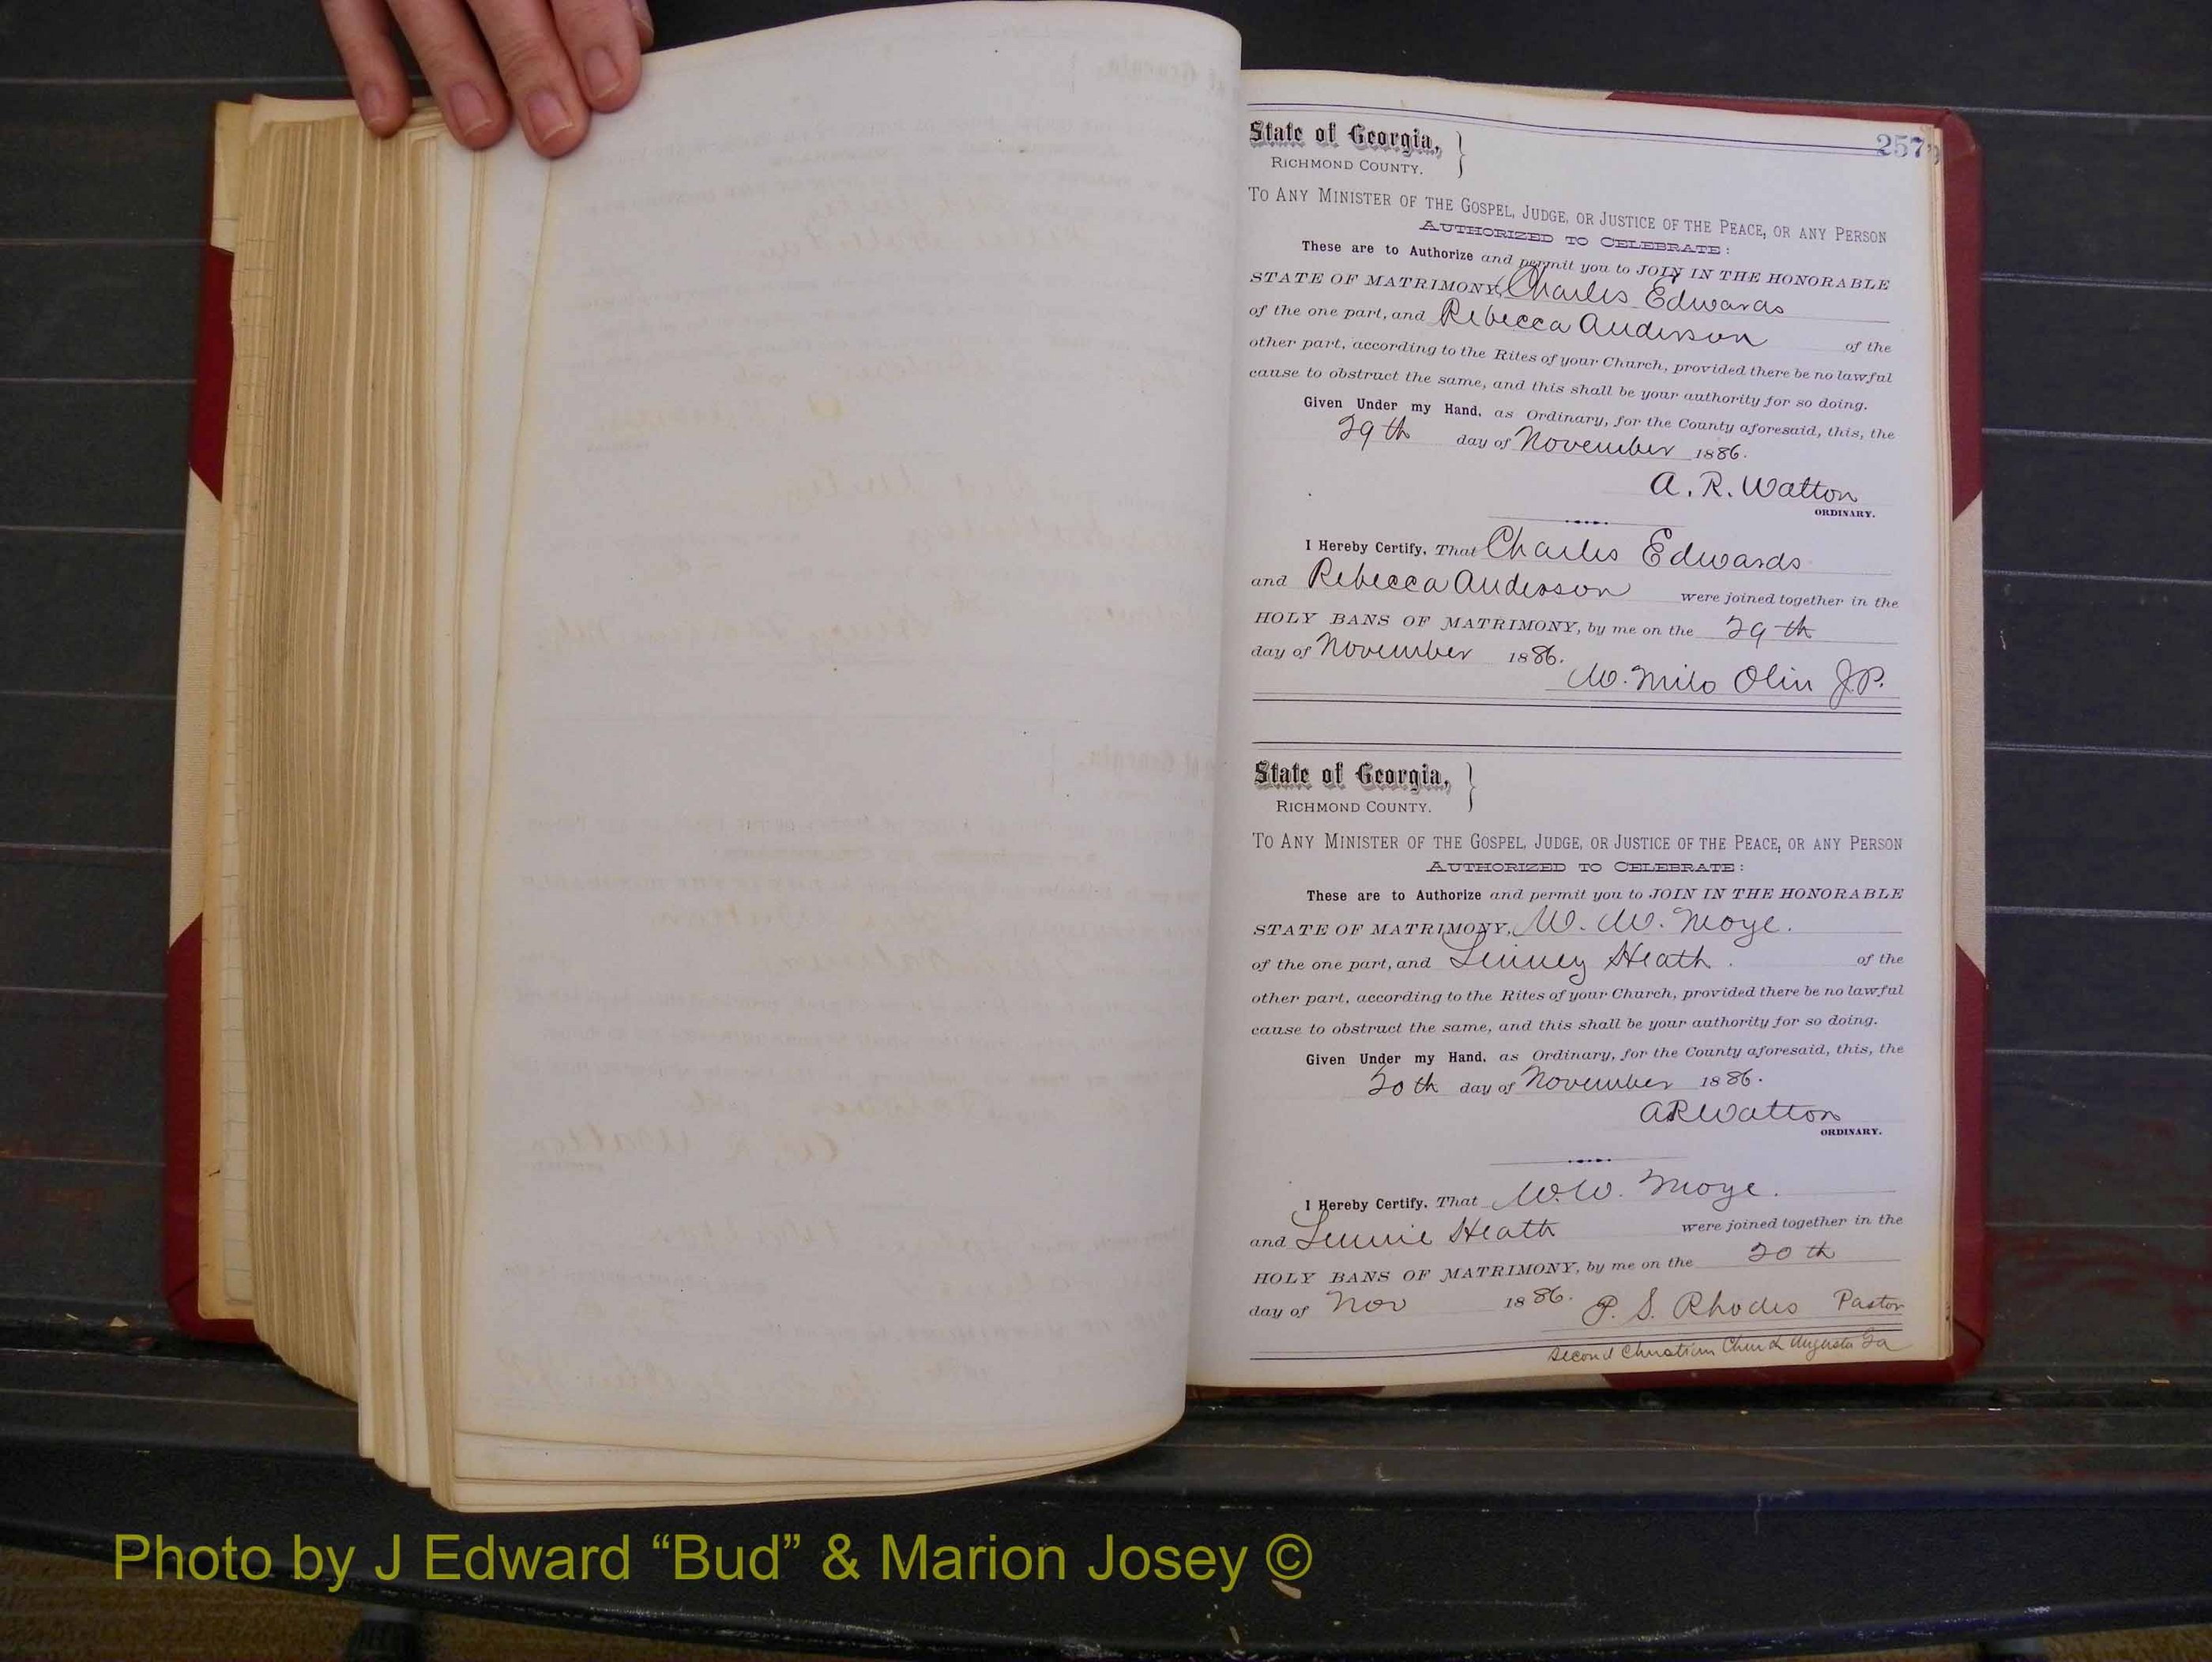 257
State of Georgia,
RICHMOND COUNTY.
TO ANY MINISTER OF THE GOSPEL, JUDGE, OR JUSTICE OF THE PEACE, OR ANY PERSON
AUTHORIZED TO CELEBRATE:
These are to Authorize and permit you to JOIN IN THE HONORABLE
STATE OF MATRIMONY, Charles Edwards
of the one part, and Rebecca Anderson of the
other part, according to the Rites of your Church, provided there be no lawful
cause to obstruct the same, and this shall be your authority for so doing.
Given Under my Hand, as Ordinary, for the County aforesaid, this, the
29th day of November 1886.
A. R. Walton
ORDINARY.
I Hereby Certify, That Charles Edwards
and Rebecca Anderson were joined together in the
HOLY BANS OF MATRIMONY, by me on the 29th
day of November 1886.
W. Milo Olin J.P.
State of Georgia,
RICHMOND COUNTY.
TO ANY MINISTER OF THE GOSPEL, JUDGE, OR JUSTICE OF THE PEACE, OR ANY PERSON
AUTHORIZED TO CELEBRATE:
These are to Authorize and permit you to JOIN IN THE HONORABLE
STATE OF MATRIMONY, W. W. Moye.
of the one part, and Linney Heath. of the
other part, according to the Rites of your Church, provided there be no lawful
cause to obstruct the same, and this shall be your authority for so doing.
Given Under my Hand, as Ordinary, for the County aforesaid, this, the
20th day of November 1886.
A R Walton
ORDINARY.
I Hereby Certify, That W. W. Moye.
and Linnie Heath were joined together in the
HOLY BANS OF MATRIMONY, by me on the 20th
day of Nov 1886. P. S. Rhodes Pastor
Second Christian Church Augusta Ga
Photo by J Edward “Bud” & Marion Josey ©